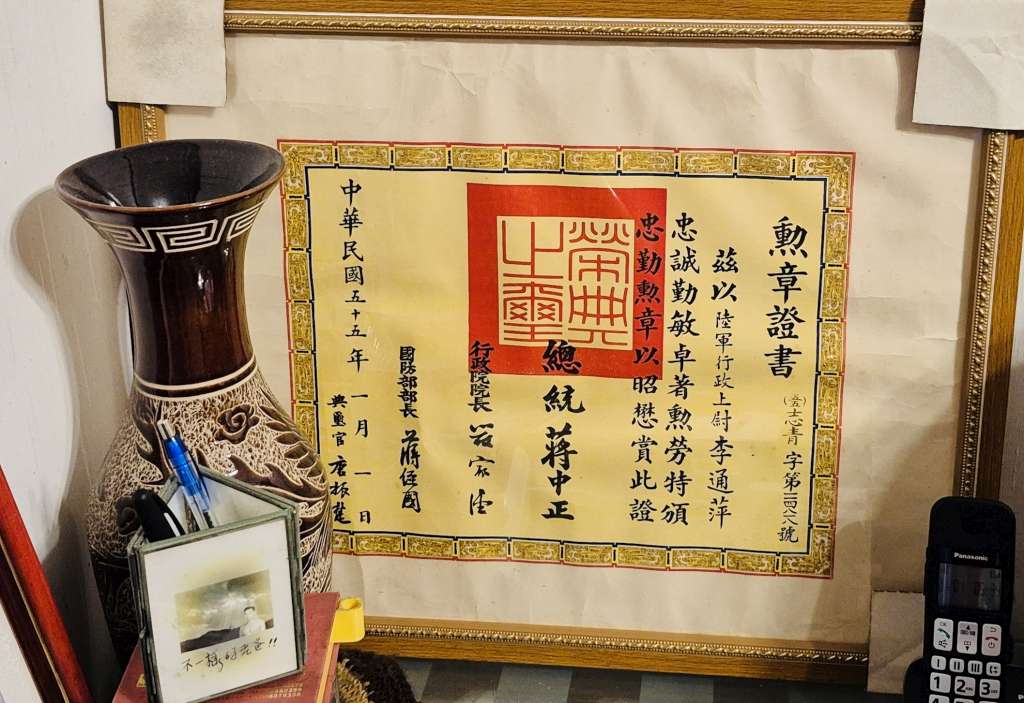 勳章證書
字第
號
茲以陸軍行政上尉李通萍
忠誠勤敏卓著勳勞特頒
忠勤勳章以昭懋賞此證
榮典之璽
總統蔣中正
行政院院長 嚴家淦
國防部部長 蔣經國
典璽官 唐振楚
中華民國五十五年一月一日
不一樣的老爸!!
Panasonic
1 2 3